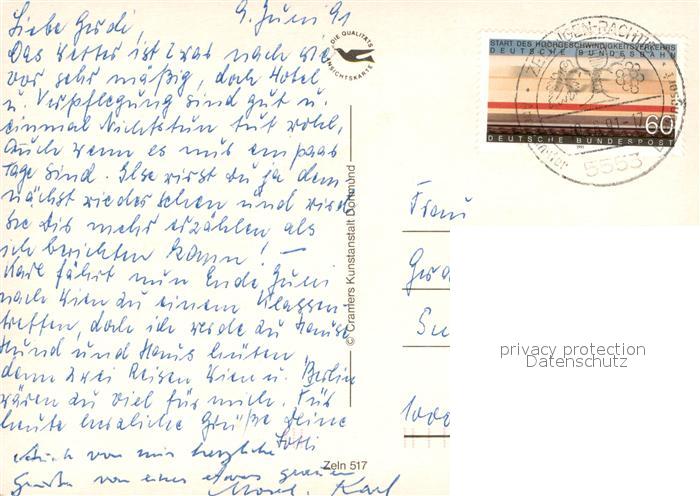 9. Juni 91
Liebe Gerdi,
Das Wetter ist zwar nach wie
vor sehr mäßig, doch Hotel
u. Verpflegung sind gut u.
einmal Nichtstun tut wohl,
auch wenn es nur ein paar
Tage sind. Ilse wirst Du ja dem
nächst wieder sehen und wird
sie Dir mehr erzählen als
ich berichten kann! —
Karl fährt nun Ende Juni
nach Wien zu einem Klassen
treffen, doch ich werde zu Hause
Hund und Haus hüten,
denn zwei Reisen Wien u. Berlin
wären zu viel für mich. Für
heute herzliche Grüße Deine
Lotti
Auch von mir herzliche
Grüße von einer etwas grauen
Mosel. Karl
DIE QUALITÄTS
ANSICHTSKARTE
© Cramers Kunstanstalt Dortmund
Zeln 517
START DES HOCHGESCHWINDIGKEITSVERKEHRS
DEUTSCHE BUNDESBAHN
60
DEUTSCHE BUNDESPOST
5553
Frau
1000
privacy protection
Datenschutz